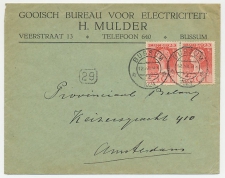 GOOISCH BUREAU VOOR ELECTRICITEIT
H. MULDER
VEERSTRAAT 13 * TELEFOON 640 * BUSSUM
BUSSUM
29
Provinciaal Belang
Keizersgracht 410
Amsterdam